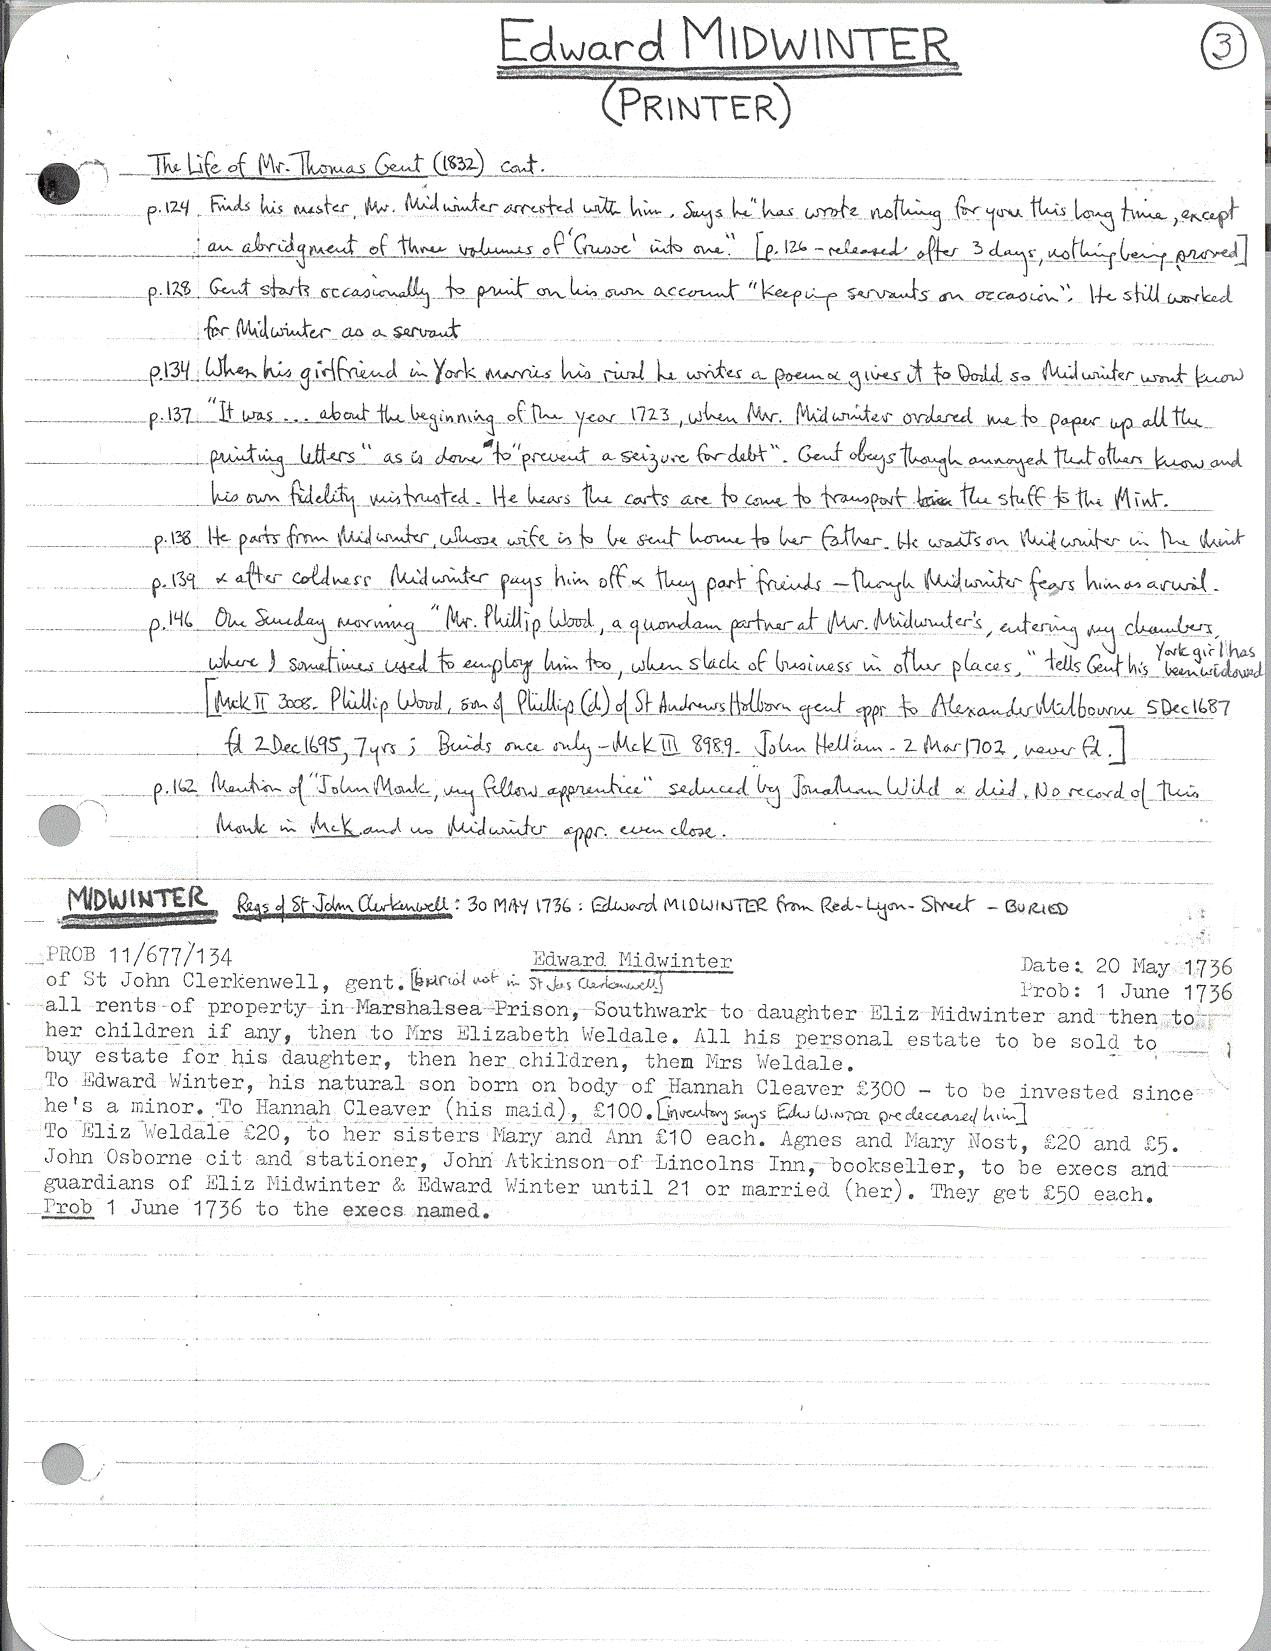 Edward MIDWINTER
3
(PRINTER)
The Life of Mr. Thomas Gent (1832) cont.
p.124 Finds his master, Mr. Midwinter arrested with him. Says he "has wrote nothing for you this long time, except
an abridgment of three volumes of 'Crusoe' into one." [p.126 - released after 3 days, nothing being proved]
p.128 Gent starts occasionally to print on his own account "keeping servants on occasion". He still worked
for Midwinter as a servant
p.134 When his girlfriend in York marries his rival he writes a poem & gives it to Dodd so Midwinter wont know
p.137 "It was ... about the beginning of the year 1723, when Mr. Midwinter ordered me to paper up all the
printing letters" as is done "to "prevent a seizure for debt". Gent obeys though annoyed that others know and
his own fidelity mistrusted. He hears the carts are to come to transport the stuff to the Mint.
p.138 He parts from Midwinter, whose wife is to be sent home to her father. He waits on Midwinter in the Mint
p.139 & after coldness Midwinter pays him off & they part friends - though Midwinter fears him as a rival.
p.146 One Sunday morning "Mr. Phillip Wood, a quondam partner at Mr. Midwinter's, entering my chambers,
where I sometimes used to employ him too, when slack of business in other places," tells Gent his York girl has been widowed
[McK II 3008. Phillip Wood, son of Phillip (d) of St Andrews Holborn gent appr to Alexander Milbourne 5 Dec 1687
fd 2 Dec 1695, 7 yrs ; Binds once only - McK III 8989. John Hellam - 2 Mar 1702, never fd.]
p.162 Mention of "John Monk, my fellow apprentice" seduced by Jonathan Wild & died. No record of this
Monk in McK and no Midwinter appr. even close.
MIDWINTER Regs of St. John Clerkenwell: 30 MAY 1736: Edward MIDWINTER from Red-Lyon-Street - BURIED
PROB 11/677/134 Edward Midwinter Date: 20 May 1736
of St John Clerkenwell, gent. [burial not in St Jas Clerkenwell] Prob: 1 June 1736
all rents of property in Marshalsea Prison, Southwark to daughter Eliz Midwinter and then to
her children if any, then to Mrs Elizabeth Weldale. All his personal estate to be sold to
buy estate for his daughter, then her children, them Mrs Weldale.
To Edward Winter, his natural son born on body of Hannah Cleaver £300 - to be invested since
he's a minor. To Hannah Cleaver (his maid), £100. [inventory says Edw WINTER predeceased him]
To Eliz Weldale £20, to her sisters Mary and Ann £10 each. Agnes and Mary Nost, £20 and £5.
John Osborne cit and stationer, John Atkinson of Lincolns Inn, bookseller, to be execs and
guardians of Eliz Midwinter & Edward Winter until 21 or married (her). They get £50 each.
Prob 1 June 1736 to the execs named.